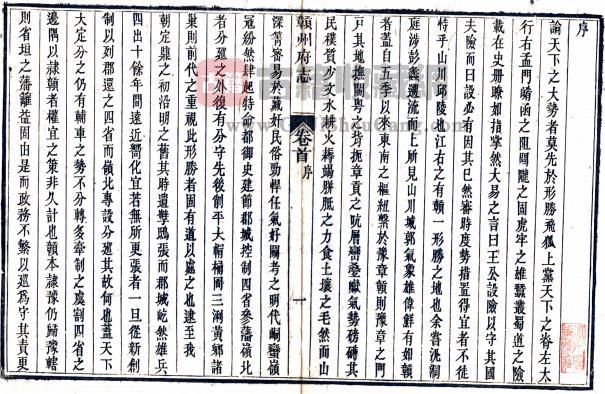 序
論天下之大勢者莫先於形勝飛狐上黨天下之脊左太
行右孟門崤函之阻關隴之固虎牢之雄蠶叢蜀道之險
載在史冊瞭如指掌然大易之言曰王公設險以守其國
夫險而曰設必有因其已然審時度勢措置得宜者不徒
恃乎山川邱陵也江右之有贛一形勝之地也余嘗洞
庭涉彭蠡遡流而上所見山川城郭氣象雄偉鮮有如贛
者蓋自五季以來東南之樞紐繫於豫章贛則豫章之門
戶其地撫閩粵之背扼章貢之吭層巒疊巘氣勢磅礡其
民樸質少文水耕火耨竭胼胝之力食土壤之毛然而山
贛州府志
卷首
序
一
深菁密易於藏奸民俗勁悍任氣好鬭考之明代峒蠻嶺
冦紛然肆起特命都御史建節郡城控制四省參藩嶺北
者分廵之外復有分守先後創平大㡌桶岡三浰黃鄉諸
巢則前代之重視此形勝者固有道以處之也逮至我
朝定鼎之初沿明之舊其時遺孽鴟張而郡城屹然雄兵
四出十餘年間遠近嚮化宜若無所更張者一旦從新創
制以列郡還之四省而嶺北專設分廵其故何也蓋天下
大定分之仍有輔車之勢不分轉多牽制之虞割四省之
邊隅以隸贛者權宜之策非久計也贛本隸豫仍歸豫轄
則省垣之藩籬益固由是而政務不繁以廵爲守其責更